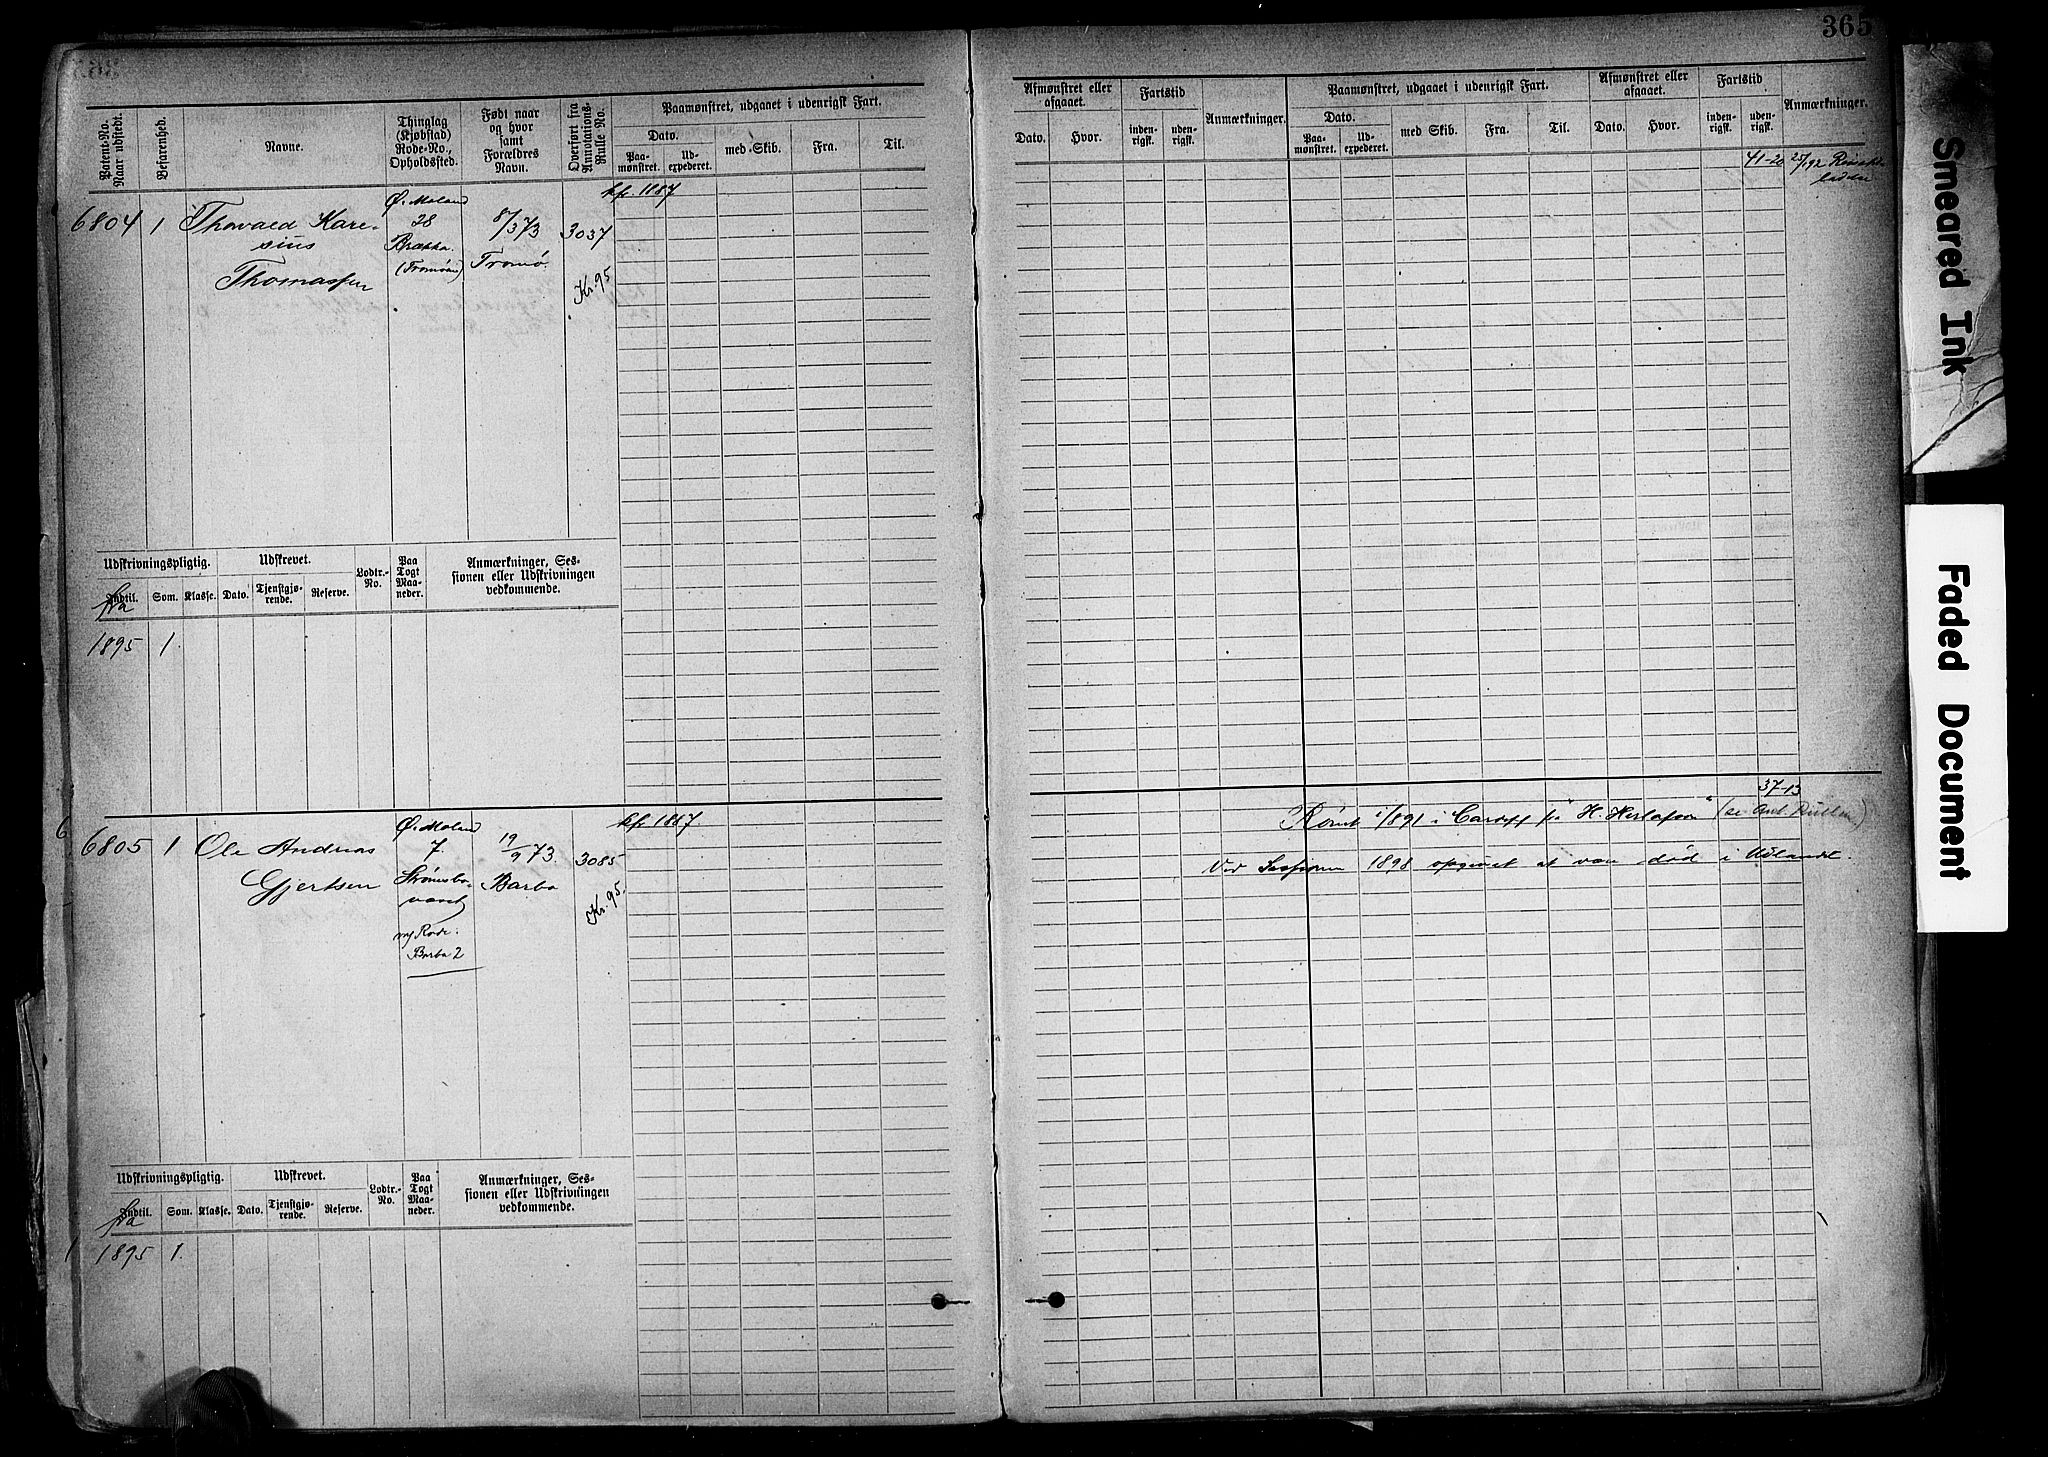 365
Patent-No. Naar udstedt.
Befarenhed.
Navne.
Thinglag (Kjøbstad) Rode-No., Opholdssted.
Født naar og hvor samt Forældres Navn.
Overført fra Annotations-Rulle No.
Paamønstret, udgaaet i udenrigsk Fart.
Dato.
Paamønstret.
Udexpederet.
med Skib.
Fra.
Til.
Afmønstret eller afgaaet.
Dato.
Hvor.
Fartstid
indenrigsk.
udenrigsk.
Anmærkninger.
Paamønstret, udgaaet i udenrigsk Fart.
Dato.
Paamønstret.
Udexpederet.
med Skib.
Fra.
Til.
Afmønstret eller afgaaet.
Dato.
Hvor.
Fartstid
indenrigsk.
udenrigsk.
Anmærkninger.
kfr. 1187
41-20 25/92
6804 1 Thorvald Kare-
sius
Thomassen
Ø. Moland
28
Brække.
(Tromøen)
8/3 73
Tromø.
3037
Kr. 95
Udskrivningspligtig.
Udskrevet.
Lodtr.-No.
Paa Togt Maaneder.
Anmærkninger, Sessionen eller Udskrivningen vedkommende.
Indtil.
fra
Som.
Klasse.
Dato.
Tjenstgjørende.
Reserve.
1895 1.
37-13
6805 1 Ole Andreas
Gjertsen
Ø. Moland
7.
Strømsbo-
varet
ny Rode:
Barbo 2
19/9 73
Barbo
3085
Kr. 95.
kfr. 1187.
Rømt i/891 i Cardiff fra "H. Herlofson"
Ved Sessionen 1898 opgivet at være død i Udlandet.
Udskrivningspligtig.
Udskrevet.
Lodtr.-No.
Paa Togt Maaneder.
Anmærkninger, Sessionen eller Udskrivningen vedkommende.
Indtil.
fra
Som.
Klasse.
Dato.
Tjenstgjørende.
Reserve.
1895 1.
Smeared Ink
Faded Document